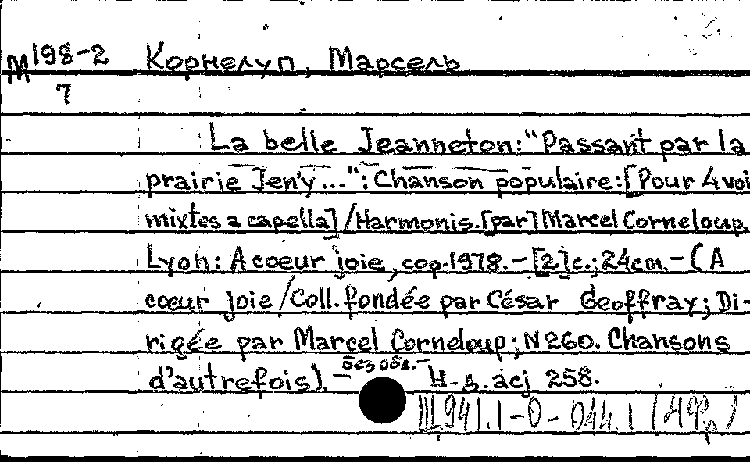 М 198-2 Корнелуп, Марсель
7
La belle Jeanneton: "Passant par la
prairie Jen'y...": Chanson populaire: [Pour 4 voi
mixtes a capella] / Harmonis. [par] Marcel Corneloup.
Lyon: A coeur joie, cop. 1978. - [2] c.; 24 cm. - (A
cœur joie / Coll. fondée par César Geoffray; Di-
rigée par Marcel Corneloup; N 260. Chansons
d'autrefois). - без обл. -
Н. д. acj 258.